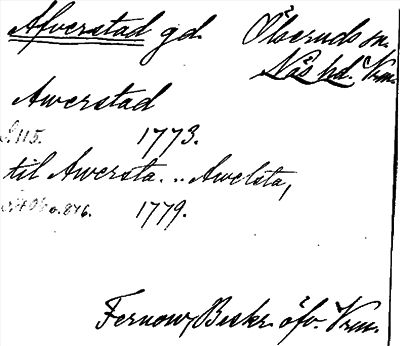 Afverstad gd. Ölseruds sn.
Näs hd. Vrm.
Awerstad
S. 115. 1773.
til Awersta... Awelsta,
s. 876. 1779.
Fernow, Beskr. öfv. Vrm.